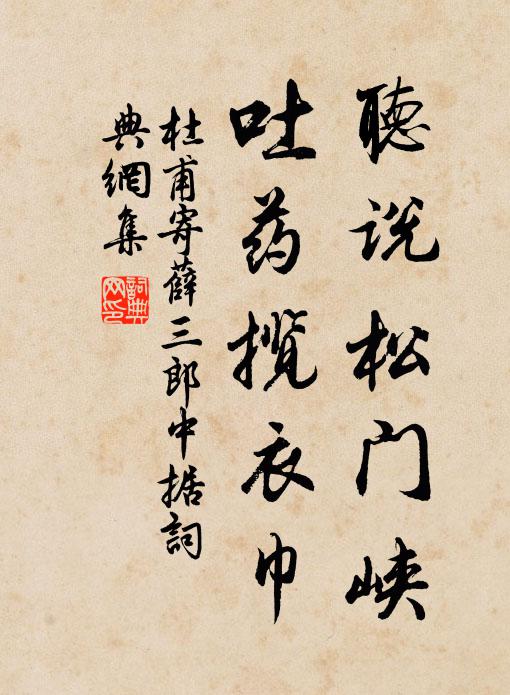 聽说松门峡
吐药揽衣巾
杜甫寄薛三郎中据詞
典網集
詞典
网印